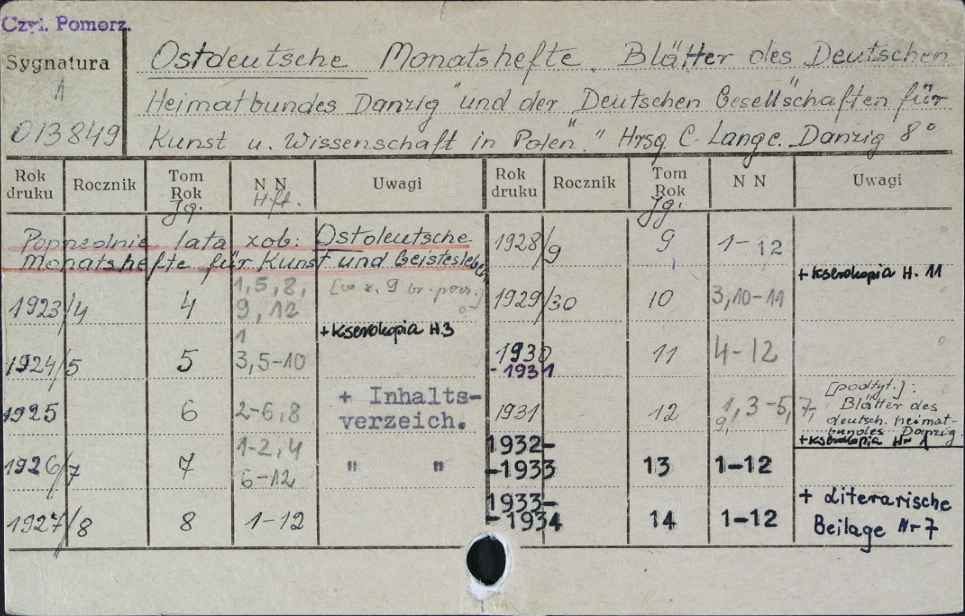 Czyt. Pomorz.
Sygnatura
A
013849
Ostdeutsche Monatshefte. Blätter des Deutschen
Heimatbundes Danzig" und der "Deutschen Gesellschaften für
Kunst u. Wissenschaft in Polen". Hrsg. C. Lange. Danzig 8°
Rok druku Rocznik Tom Rok Jg. N N Hft. Uwagi Rok druku Rocznik Tom Rok Jg. N N Uwagi
Poprzednie lata zob: Ostdeutsche
Monatshefte für Kunst und Geistesleben
1923/4 4 1, 5, 8, 9, 12
+ kserokopia H.3
1924/5 5 1 3, 5-10
1925 6 2-6, 8 + Inhalts-
verzeich.
1926/7 7 1-2, 4 6-12 " "
1927/8 8 1-12
1928/9 9 1-12
+ kserokopia H. 11
1929/30 10 3, 10-11
1930
-1931 11 4-12
1931 12 1, 3-5, 7, 9, [podtyt.]:
Blätter des
deutsch. Heimat-
bundes Danzig
+ kserokopia H-1
1932-
-1933 13 1-12
1933-
-1934 14 1-12 + Literarische
Beilage Nr 7